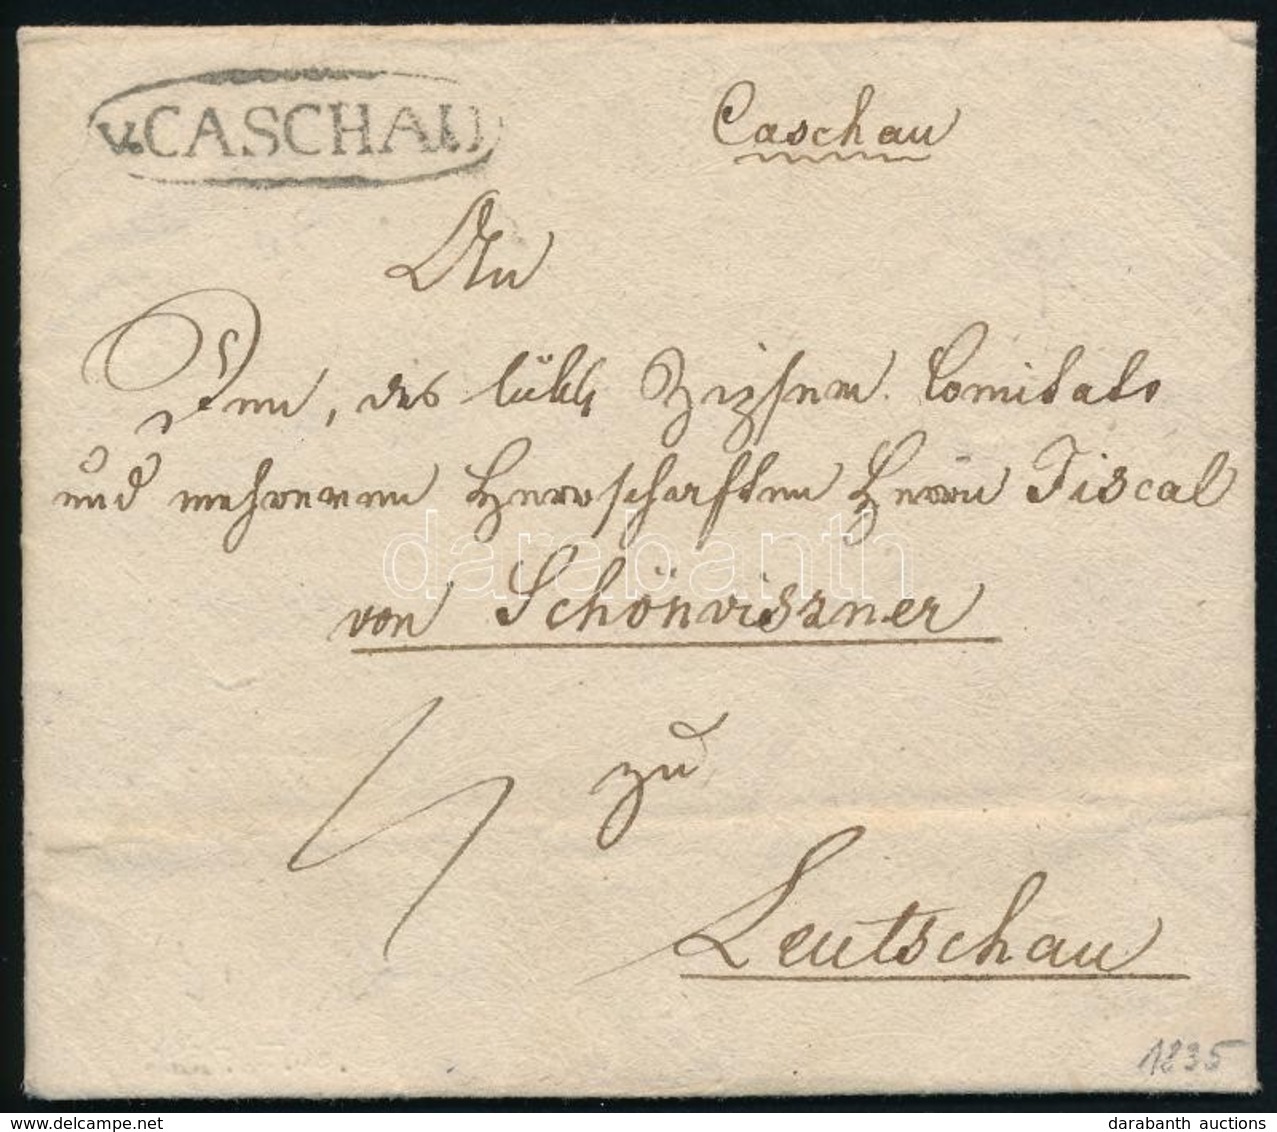 v. CASCHAU
Caschau
An
Den, des löbl Zipser. Comitats
und mehreren Herrschaften Herrn Fiscal
von Schönviszner
4
zu
Leutschau
1835
darabanth
delcampe.net
darabanth auctions